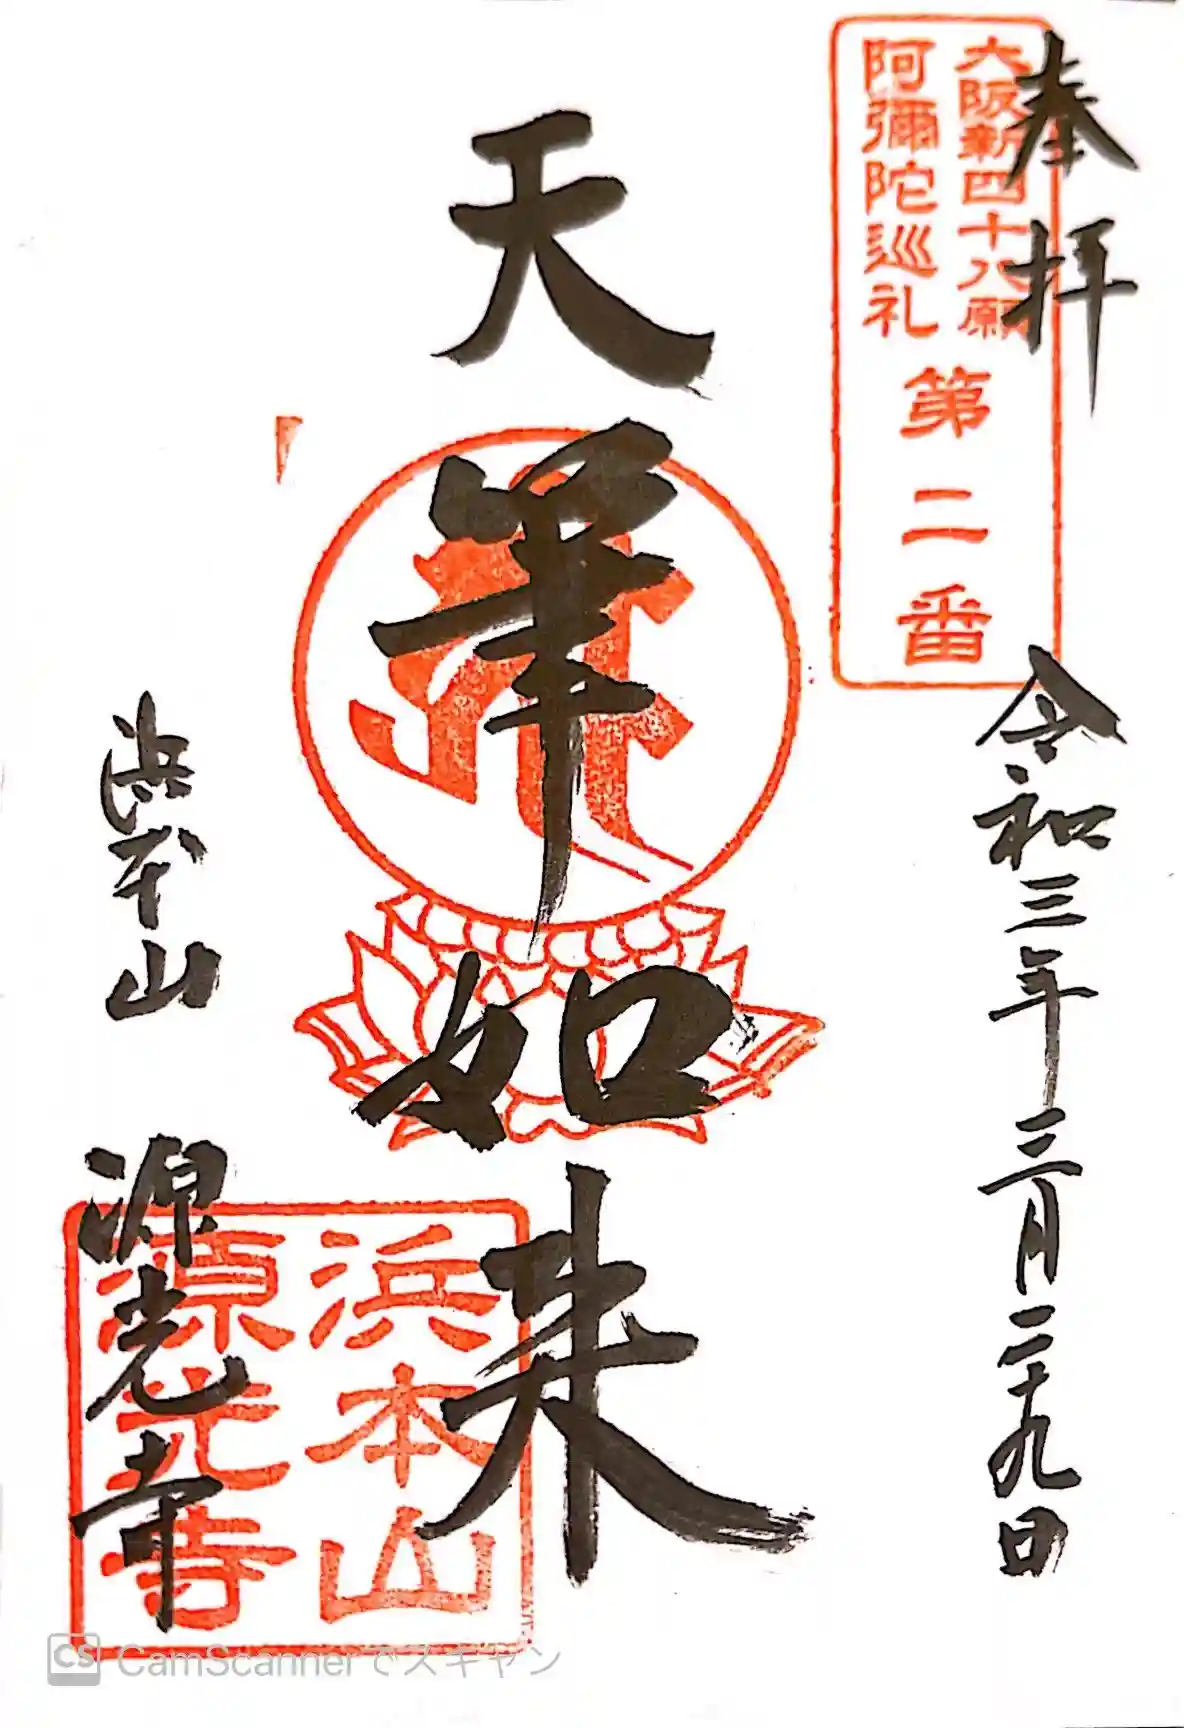 奉拝
大阪新四十八願
阿彌陀巡礼
第二番
令和三年三月二十九日
天筆如来
浜本山 源光寺
浜本山
源光寺
CS CamScannerでスキャン